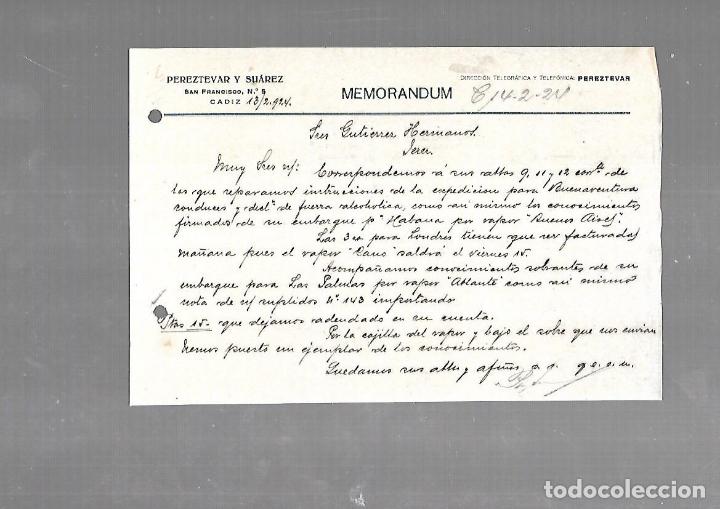 PEREZTEVAR Y SUÁREZ
SAN FRANCISCO, N.º 5
CADIZ 13/2.924.
DIRECCIÓN TELEGRÁFICA Y TELEFÓNICA: PEREZTEVAR
MEMORANDUM
C/14-2-24
Sres Gutierrez Hermanos.
Jerez.
Muy Sres n/: Correspondemos á sus attas 9, 11 y 12 corrte de
las que separamos instrucciones de la expedicion para Buenaventura
conduces y decln de fuerza alcoholica, como asi mismo los conocimientos
firmados de su embarque pa Habana por vapor "Buenos Aires".
Las 3 ca para Londres tienen que ser facturadas
mañana pues el vapor saldrá el viernes 15.
Acompañamos conocimientos sobrantes de su
embarque para Las Palmas por vapor "Atlante" como asi mismo
nota de n/ suplidos nº 143 importando
Ptas 15.- que dejamos adeudado en su cuenta.
Por la cajilla del vapor y bajo el sobre que nos envian
hemos puesto un ejemplar de los conocimientos.
Quedamos sus attos y afmos s. s. q. e. s. m.
todocoleccion